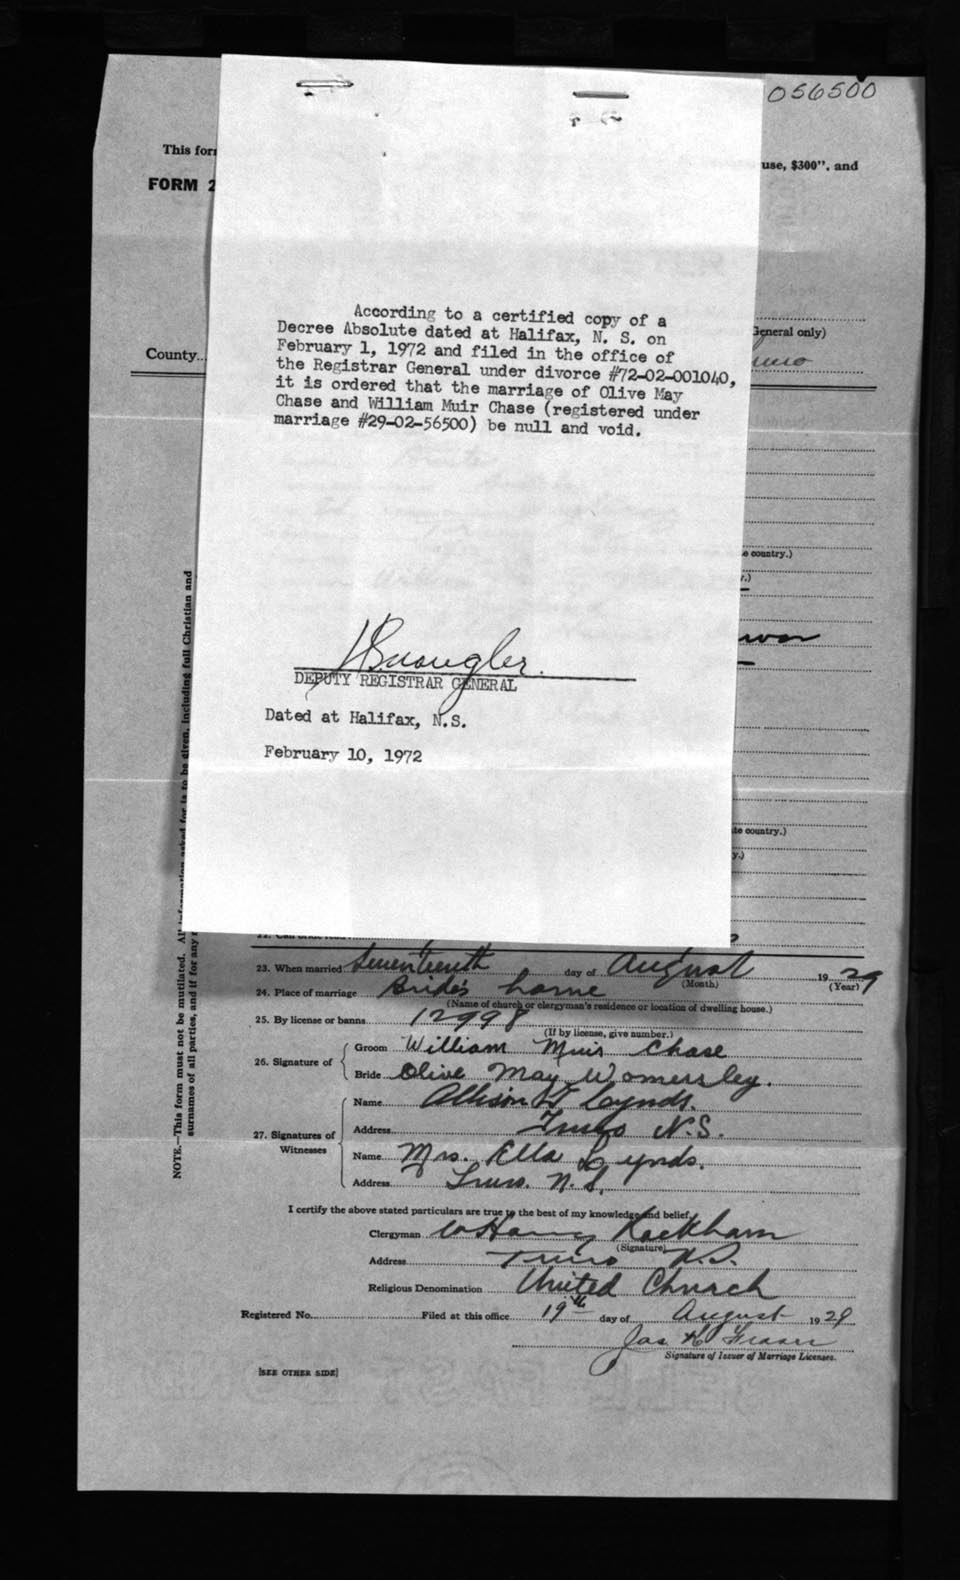 056500
This for
use, $300". and
FORM 2
General only)
County..
According to a certified copy of a
Decree Absolute dated at Halifax, N. S. on
February 1, 1972 and filed in the office of
the Registrar General under divorce #72-02-001040,
it is ordered that the marriage of Olive May
Chase and William Muir Chase (registered under
marriage #29-02-56500) be null and void.
e country.)
y.)
DEPUTY REGISTRAR GENERAL
Dated at Halifax, N.S.
February 10, 1972
te country.)
y.)
NOTE.—This form must not be mutilated. All information asked for is to be given, including full Christian and
surnames of all parties, and if for any
23. When married Seventeenth day of August 1929
(Month) (Year)
24. Place of marriage Bride's home
(Name of church or clergyman's residence or location of dwelling house.)
25. By license or banns 12998
(If by license, give number.)
26. Signature of Groom William Muir Chase
Bride Olive May Womersley.
27. Signatures of Witnesses Name Allison Lynds.
Address Truro N.S.
Name Mrs. Ella Lynds.
Address Truro. N.S.
I certify the above stated particulars are true to the best of my knowledge and belief.
Clergyman W Harry Rackham
(Signature)
Address Truro N.S.
Religious Denomination United Church
Registered No. Filed at this office 19th day of August 1929
Jas K Fraser
Signature of Issuer of Marriage Licenses.
[SEE OTHER SIDE]